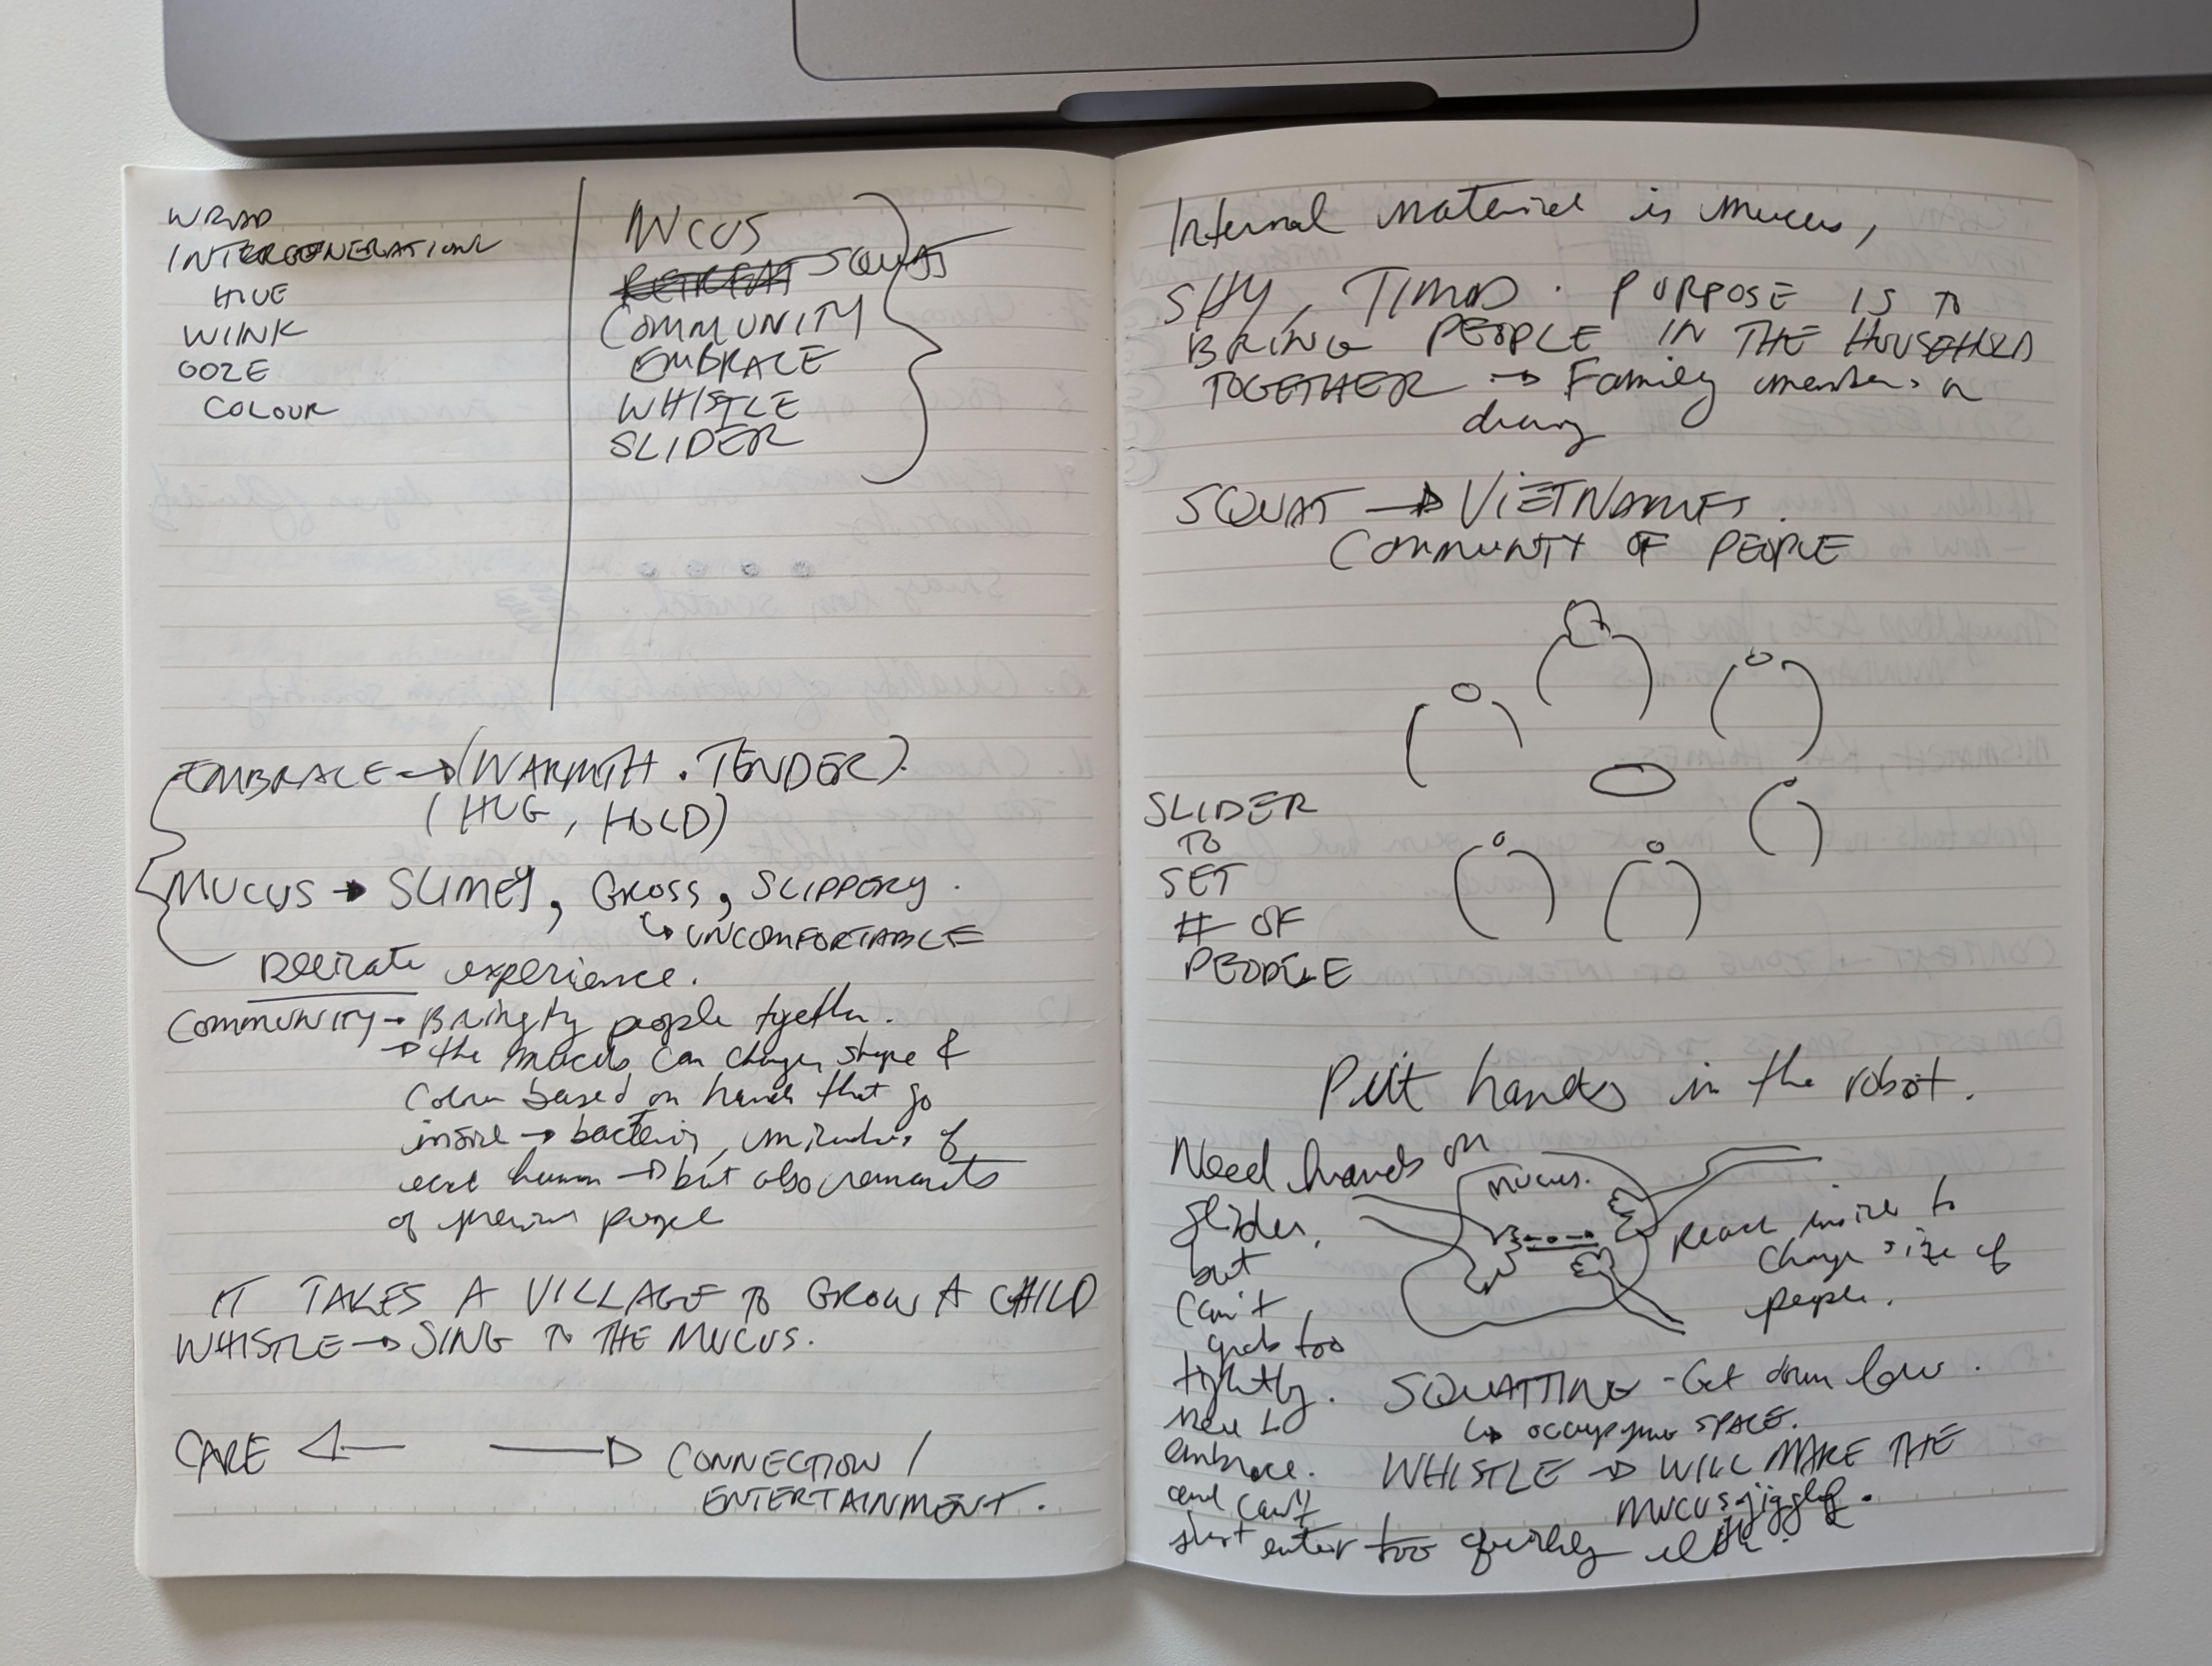 INTERGENERATIONAL
HIVE
WINK
OOZE
COLOUR
MUCUS
RETREAT SQUAT
COMMUNITY
EMBRACE
WHISTLE
SLIDER
EMBRACE → (WARMTH. TENDER).
(HUG, HOLD)
MUCUS → SLIMEY, GROSS, SLIPPERY.
↳ UNCOMFORTABLE
Delicate experience.
COMMUNITY → Bringing people together.
→ the mucus can change shape &
colour based on hands that go
inside → bacteria, of
each human → but also remnants
of previous people
IT TAKES A VILLAGE TO GROW A CHILD
WHISTLE → SING TO THE MUCUS.
CARE ← → CONNECTION /
ENTERTAINMENT.
Internal material is mucus,
SHY, TIMID. PURPOSE IS TO
BRING PEOPLE IN THE HOUSEHOLD
TOGETHER → Family members or
SQUAT → VIETNAMESE.
COMMUNITY OF PEOPLE
SLIDER
TO
SET
# OF
PEOPLE
Put hands in the robot.
Need hands on
slider,
but
can't
grab too
tightly.
Need to
embrace.
and can't
just enter too quickly either.
mucus.
Reach inside to
change size of
people.
SQUATTING - Get down low.
↳ occupy your SPACE.
WHISTLE → WILL MAKE THE
MUCUS jiggle.